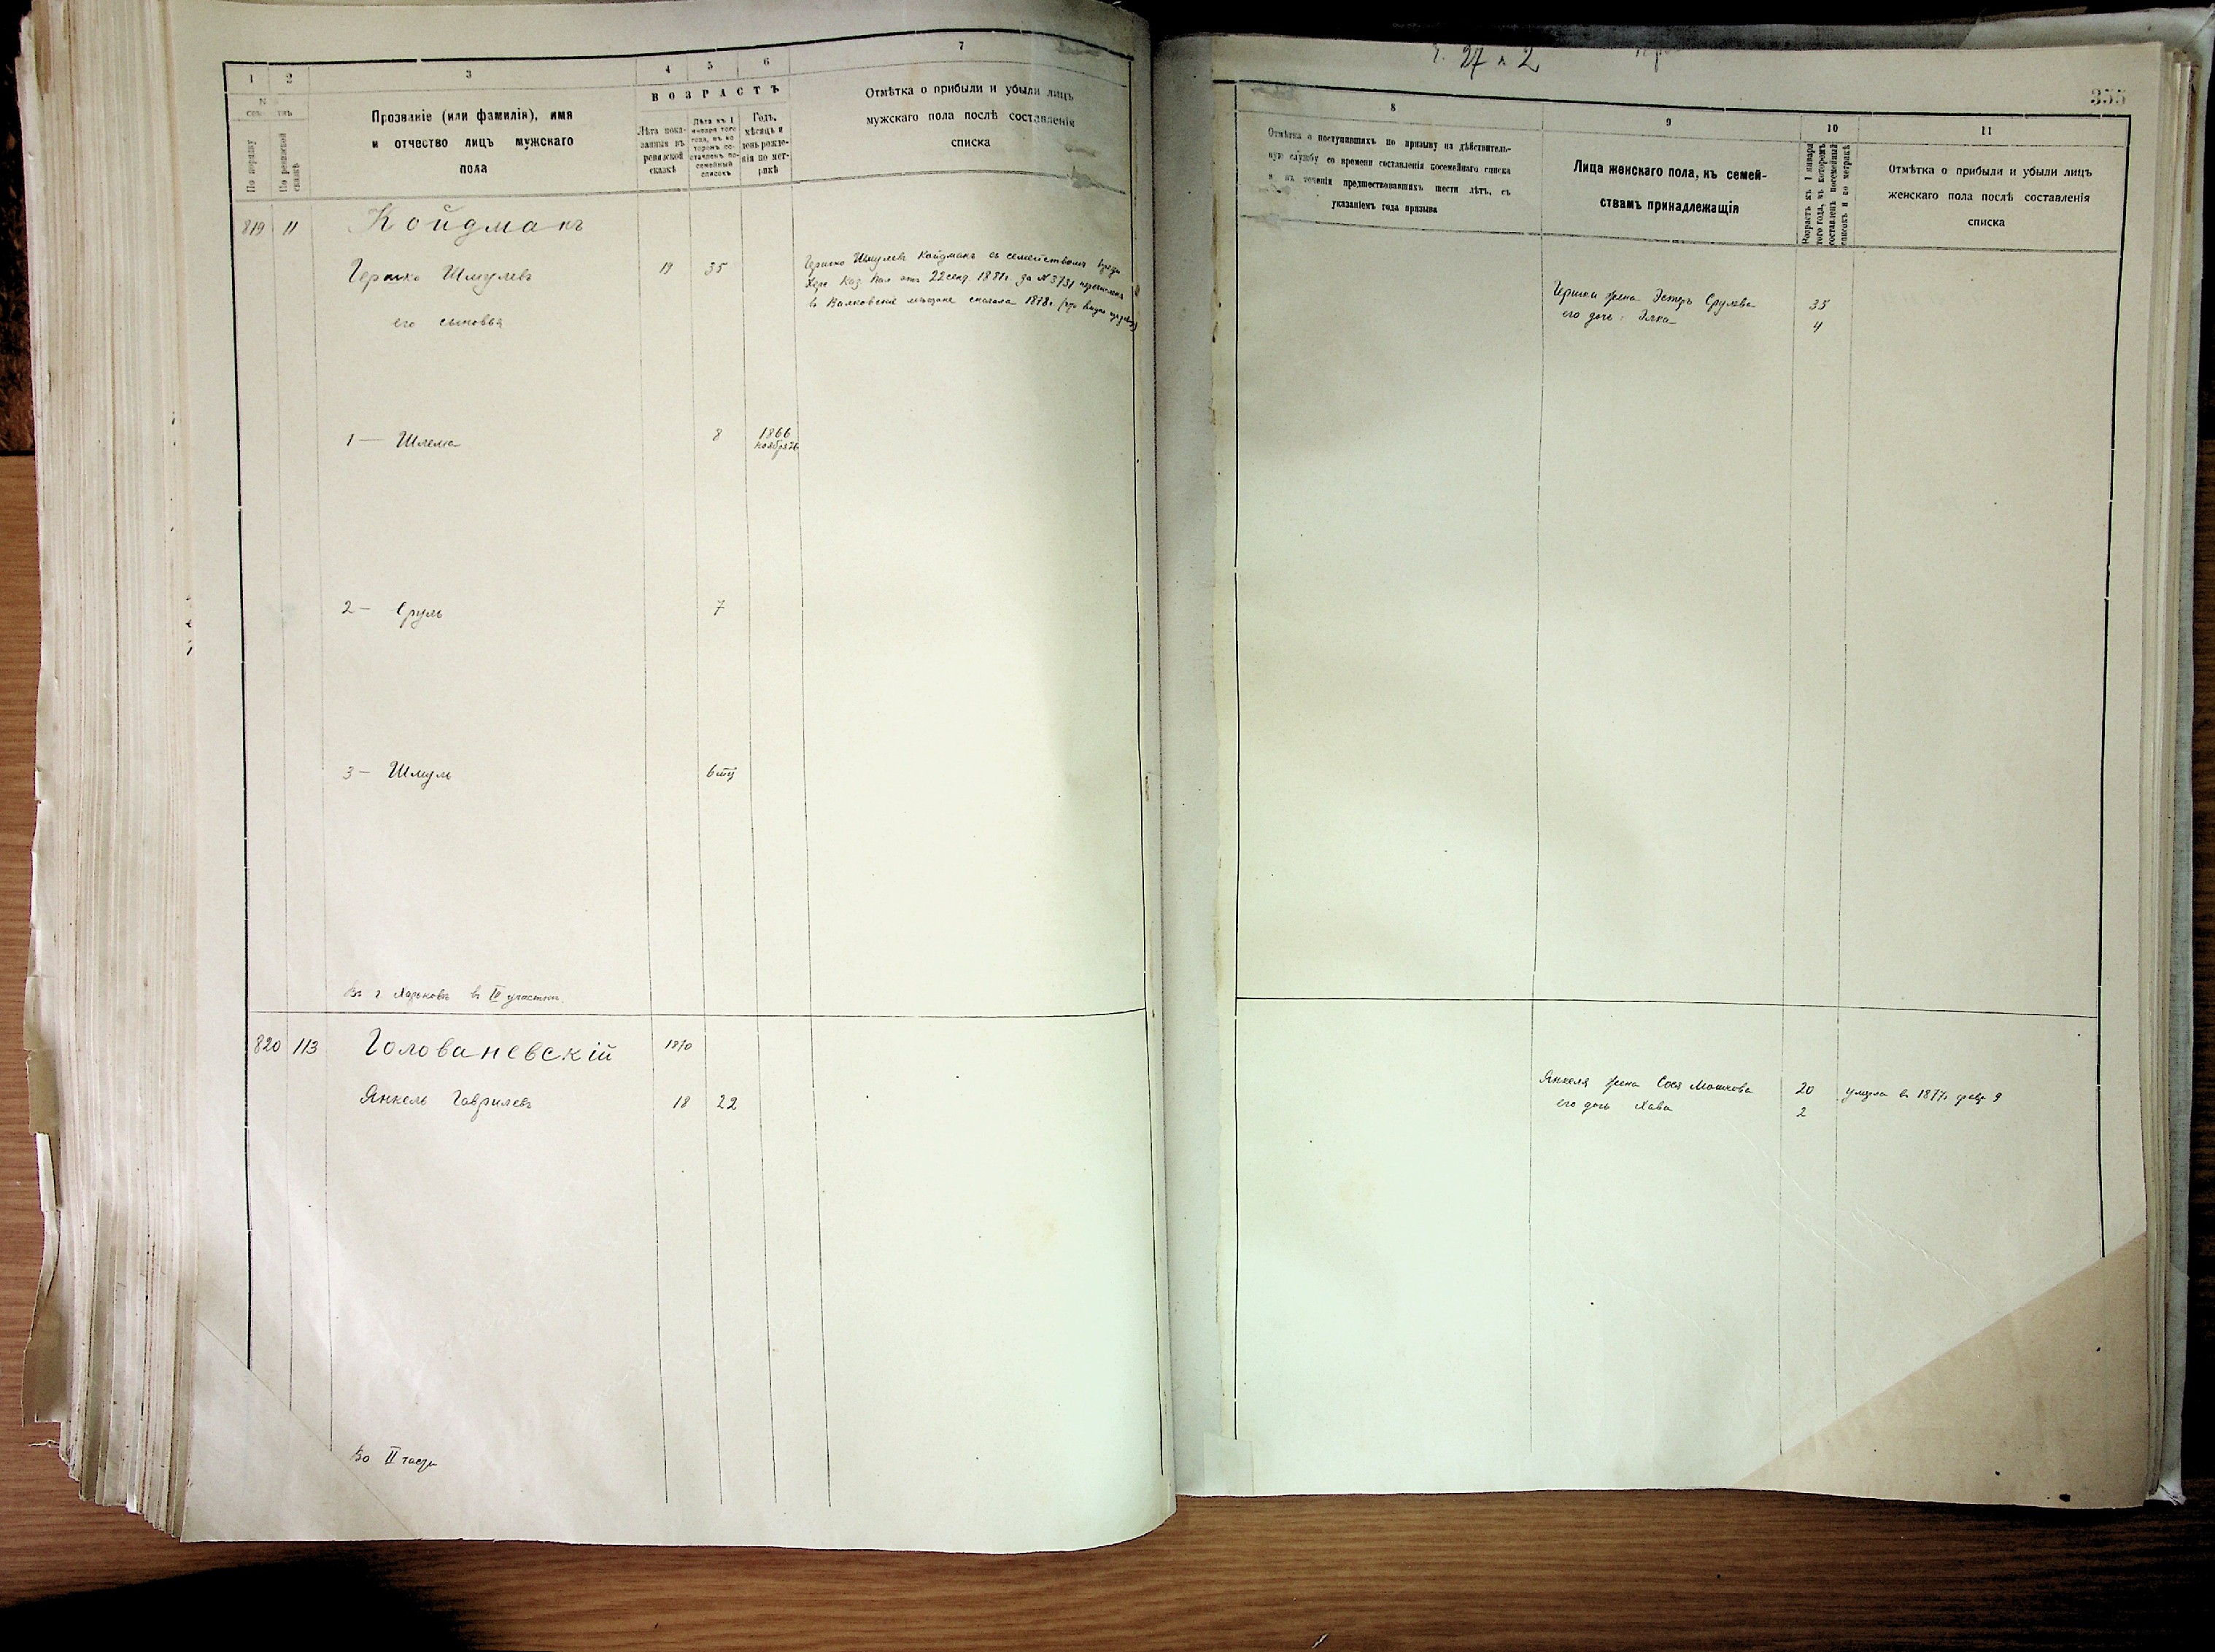 1 2 3 4 5 6 7
Прозваніе (или фамилія), имя
и отчество лицъ мужскаго
пола
По порядку
По ревизской сказкѣ
ВОЗРАСТЪ
Лѣта пока-
занныя въ
ревизской
сказкѣ
Лѣта къ 1
января того
года, въ ко
торомъ со-
ставленъ по-
семейный
списокъ
Годъ,
мѣсяцъ и
день рожде-
нія по мет-
рикѣ
Отмѣтка о прибыли и убыли лицъ
мужскаго пола послѣ составленія
списка
819 11 Койдманъ
Гершко Шмулевъ 19 35
его сыновья
Гершко Шмулевъ Койдманъ съ семействомъ
Каз. Пал. отъ 22 сент. 1881г. за № 3731 перечисленъ
въ Валковские мѣщане сначала 1878г.
1 — Шлема 8 1866
ноября
2 — Сруль 7
3 — Шмуль 6 мц
Въ г. Харьковѣ в IV участкѣ
820 113 Голованевскій 1870
Янкель Гаврилевъ 18 22
Во II части
27 2
355
8 9 10 11
Отмѣтка о поступившихъ по призыву на дѣйствитель-
ную службу со времени составленія посемейнаго списка
и въ теченія предшествовавшихъ шести лѣтъ, съ
указаніемъ года призыва
Лица женскаго пола, къ семей-
ствамъ принадлежащія
Возрастъ къ 1 января
того года, въ которомъ
составленъ посемейный
списокъ и по метрикѣ
Отмѣтка о прибыли и убыли лицъ
женскаго пола послѣ составленія
списка
Гершки жена Эстеръ Срулева 35
его дочь: Элка 4
Янкеля жена Сося Мошкова 20 умерла в 1877г. февр 9
его дочь Хава 2